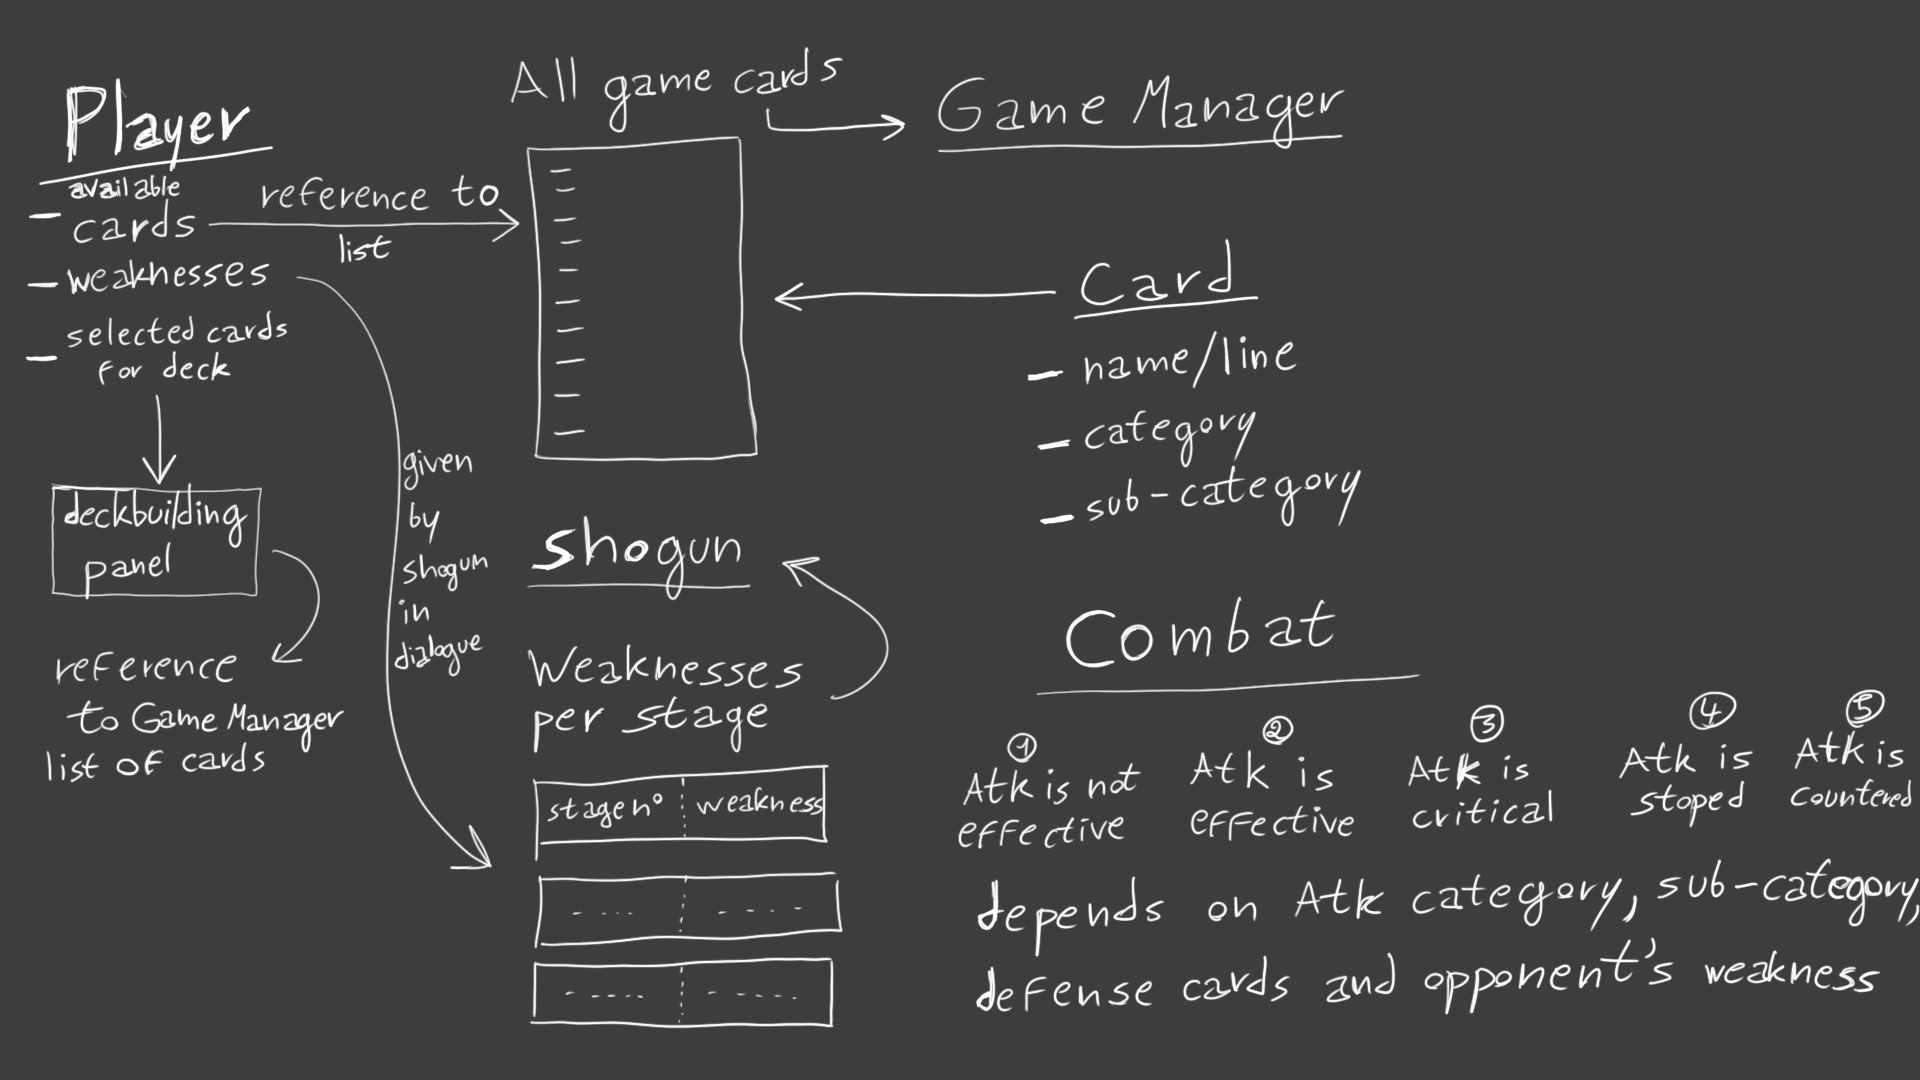 Player
available
- cards
- weaknesses
- selected cards
for deck
deckbuilding
panel
reference
to Game Manager
list of cards
reference to
list
given
by
shogun
in
dialogue
All game cards
Game Manager
Card
- name/line
- category
- sub-category
shogun
Weaknesses
per stage
stage n° weakness
Combat
①
Atk is not
effective
②
Atk is
effective
③
Atk is
critical
④
Atk is
stoped
⑤
Atk is
countered
depends on Atk category, sub-category,
defense cards and opponent's weakness